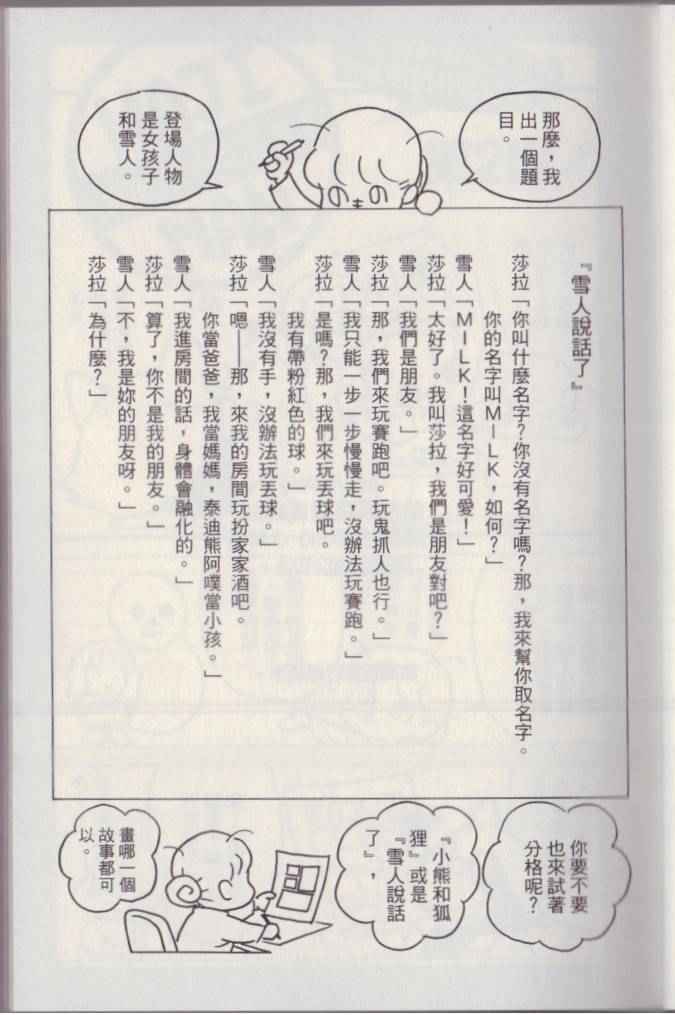 那麼，我
出一個題
目。
登場人物
是女孩子
和雪人。
『雪人說話了』
莎拉「你叫什麼名字？你沒有名字嗎？那，我來幫你取名字。
你的名字叫MILK，如何？」
雪人「MILK！這名字好可愛！」
莎拉「太好了。我叫莎拉，我們是朋友對吧？」
雪人「我們是朋友。」
莎拉「那，我們來玩賽跑吧。玩鬼抓人也行。」
雪人「我只能一步一步慢慢走，沒辦法玩賽跑。」
莎拉「是嗎？那，我們來玩丟球吧。
我有帶粉紅色的球。」
雪人「我沒有手，沒辦法玩丟球。」
莎拉「嗯——那，來我的房間玩扮家家酒吧。
你當爸爸，我當媽媽，泰迪熊阿噗當小孩。」
雪人「我進房間的話，身體會融化的。」
莎拉「算了，你不是我的朋友。」
雪人「不，我是妳的朋友呀。」
莎拉「為什麼？」
你要不要
也來試著
分格呢？
『小熊和狐
狸』或是
『雪人說話
了』，
畫哪一個
故事都可
以。